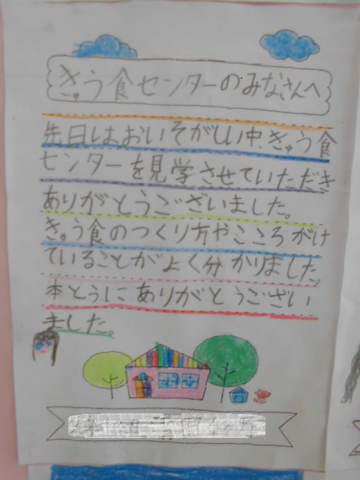 きゅう食センターのみなさんへ
先日はおいそがしい中、きゅう食
センターを見学させていただき
ありがとうございました。
きゅう食のつくり方やこころがけ
ていることがよく分かりました。
本とうにありがとうござい
ました。